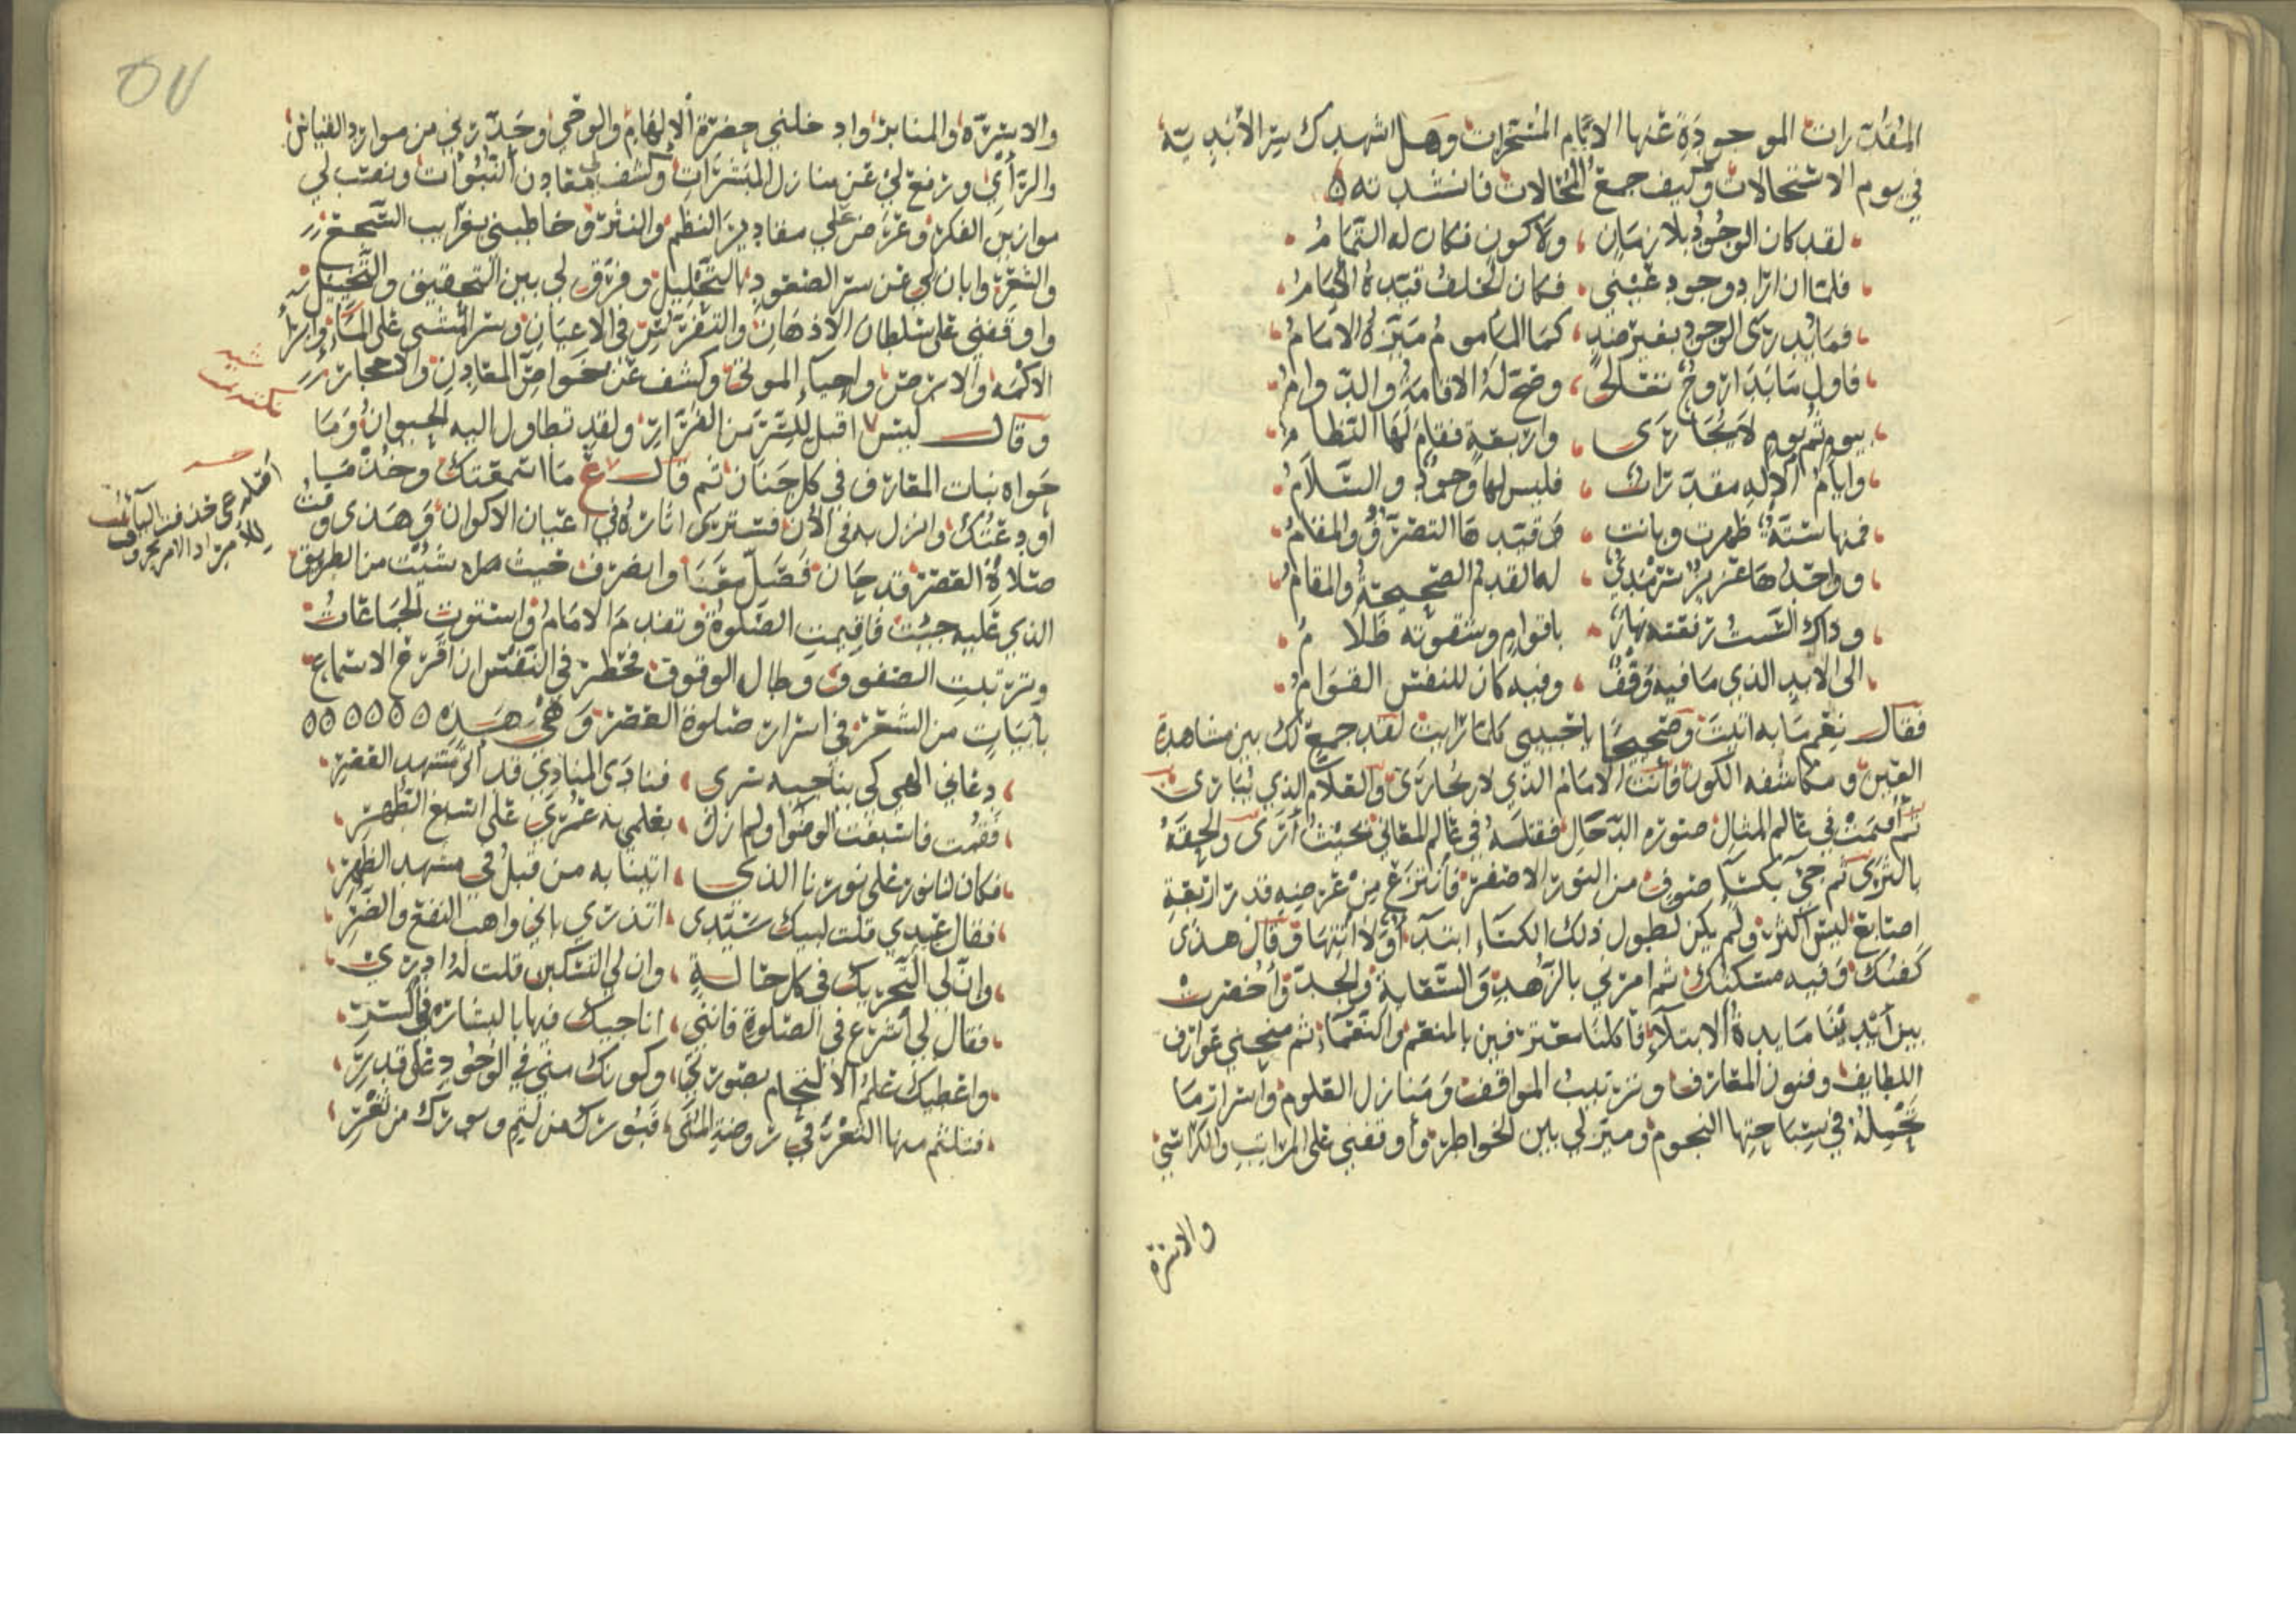 المقدرات الموجودة عنها الايام المسخرات وهل اشهدك سر الأبدية
في يوم الاستحالات وكيف جمع المحالات فانشدته
لقد كان الوجود بلا زمان ، ولا كون فكان له التمام
فلما ان اراد وجود عيني ، فكان لخلف قيده الامام
فما يدري الوجود بغير ضد ، كما الماموم ميزه الامام
فاول ما بدا روح تعالى ، وضح له الاقامة والدوام
بيوم ثم يوم لا يجارى ، واربعة فقام لها النظام
وايام الاله مقدرات ، فليس لها وجود والسلام
فمنها ستة ظهرت وبانت ، وقيدها التصرف والمقام
وواحدها عزيز سرمدي ، له القدم الصحيحة والمقام
وذاك السبت رفعته نهار ، باقوام وشقوته ظلام
الى الابد الذي ما فيه وقف ، وفيه كان للنفس القوام
فقال نعم ما به اتيت وصحيحا يا حبيبي كلما رايت لقد جمع لك بين مشاهدة
العين ومكاشفة الكون فأنت الامام الذي لا يجارى والعلام الذي لا يبارى
ثم أقيمت في عالم المثال صورة الدجال فقتلته في عالم المعاني بحيث أرى والحقته
بالثرى ثم جيء بكساء صوف من النور الاصفر فانتزع من عرضه قدر اربعة
اصابع ليس اكثر ولم يكن لطول ذلك الكساء ابتداء ولا انتهاء وقال هذا
كفنك وفيه مسكنك ثم امرني بالزهد والسقاية والجد وأحضرت
بين أيدينا مايدة الابتلاء فأكلنا معترفين بالمنعم والنعماء ثم منحني عوارف
اللطايف وفنون المعارف وترتيب المواقف ومنازل العلوم واسرار ما
تحمله في سباحتها النجوم وميز لي بين الخواطر وأوقفني على المراتب والكراسي
والاسرة
والاسرة والمنابر وادخلني حضرة الالهام والوحي وحذرني من موارد القياس
والرأي ورفع لي عن منازل المبشرات وكشف لي معادن النبوات ونصب لي
موازين الفكر وعرض علي مقادير النظم والنثر وخاطبني بغرايب السجع
والشعر وابان لي عن سر الصعود بالتحليل وفرق لي بين التحقيق والتخييل
واوقفني على سلطان الاذهان والتفرس في الاعيان وسر المشي على الماء وابرأ
الاكمه والابرص واحياء الموتى وكشف عن خواص المعادن والاحجار
وقال ليس اقبل للسر من الفرار ولقد تطاول اليه الحيوان وما
حواه نبات المعارف في كل جنان ثم قال ع ما اسمعتك وخذ ما
اودعتك وانزل به في الأن فسترى اثاره في اعيان الاكوان وهذى وقت
صلاة العصر قد حان فصل معنا وانصرف حيث شئت من الطريق
الذي عليه جيت فاقيمت الصلوة وتقدم الامام واستوت الجماعات
وترتبت الصفوف وطال الوقوف فخطر في النفس ان اقرع الاسماع
بأبيات من الشعر في اسرار صلوة العصر وهي هذه
دعاني الهي كي يناجيه سري ، فنادى المنادي قد أتى مشهد العصر
فقمت فاسبغت الوضوا ولم ازل ، بعلمي به عمري على اسبغ الطهر
فكان لنا نور على نورنا الذي ، اتينا به من قبل في مشهد الظهر
فقال عبدي قلت لبيك سيدي ، اتدري باني واهب النفع والضر
وان لي التحريك في كل حالة ، وان لي التسكين قلت له ادري
فقال لي أشرع في الصلوة فانني ، اناجيك فيها بالبشارة في السر
واعطيك علم الالتحام بصورتي ، وكونك مني في الوجود على قدر
فتلثم منها الثغر في روضة المنى ،